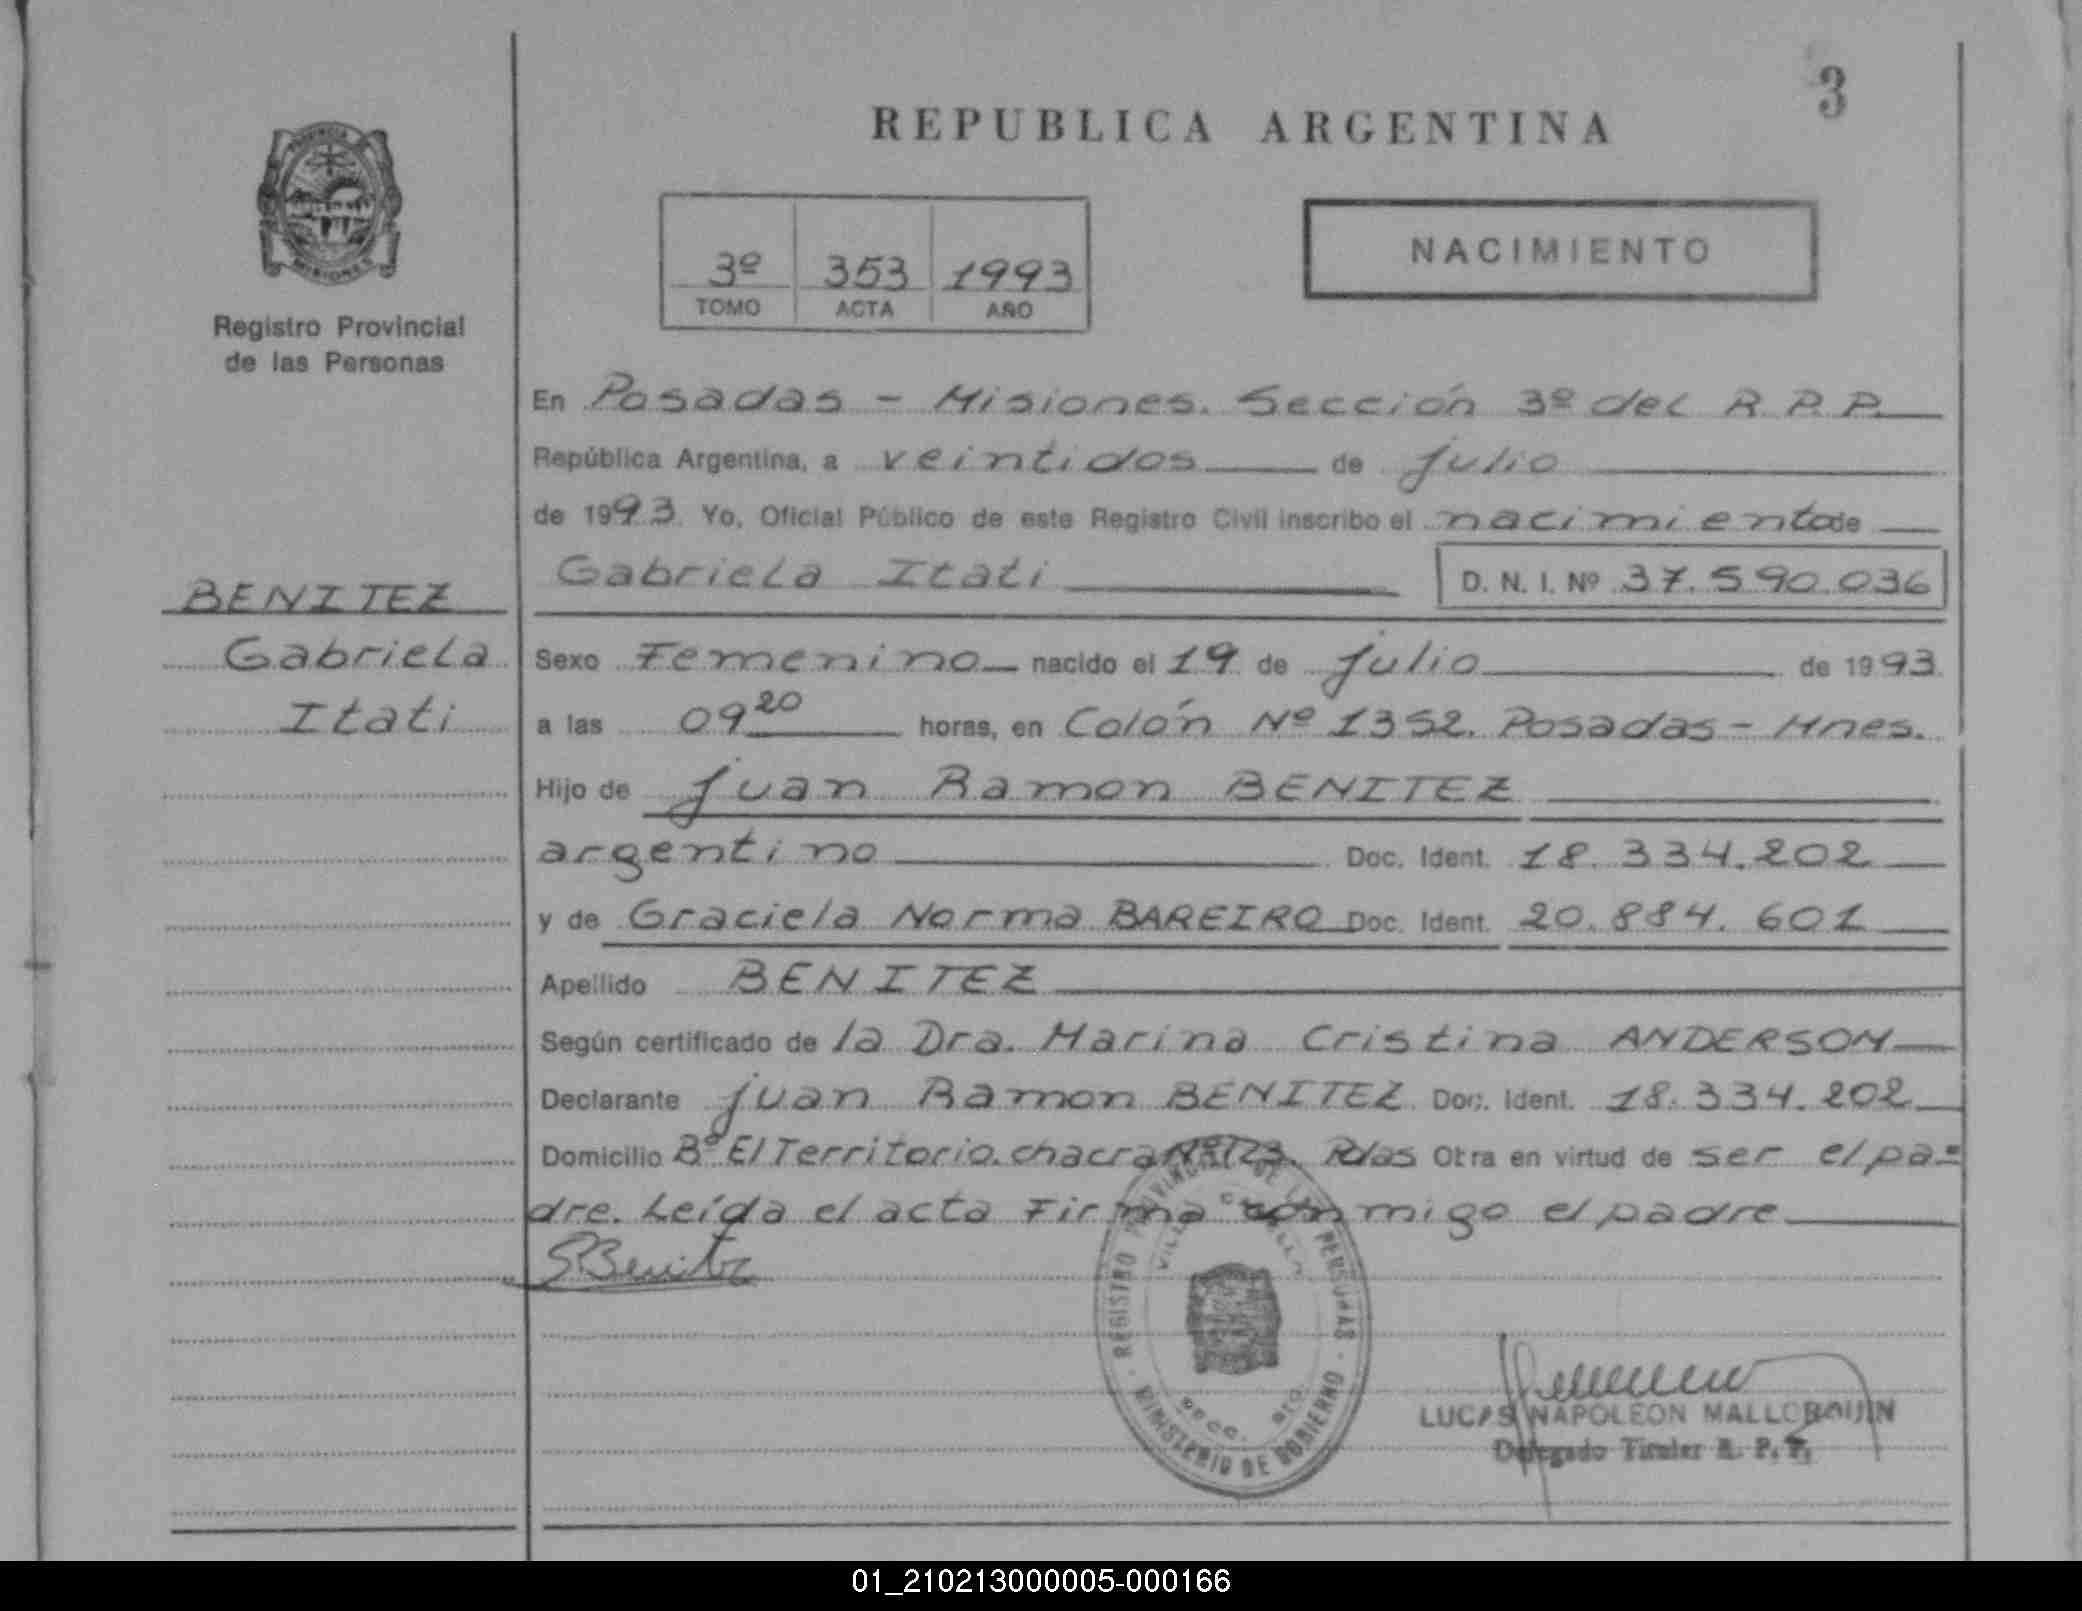 3
REPUBLICA ARGENTINA
PROVINCIA
MISIONES
Registro Provincial
de las Personas
3º 353 1993
TOMO ACTA AÑO
NACIMIENTO
En Posadas - Misiones. Sección 3º del R.P.P.
República Argentina, a veintidos de julio
de 1993. Yo, Oficial Público de este Registro Civil inscribo el nacimiento de
Gabriela Itati D. N. I. Nº 37.590.036
BENITEZ
Gabriela
Itati
Sexo Femenino nacido el 19 de julio de 1993
a las 09 20 horas, en Colón Nº 1352. Posadas - Mnes.
Hijo de Juan Ramon BENITEZ
argentino Doc. Ident. 18.334.202
y de Graciela Norma BAREIRO Doc. Ident. 20.884.601
Apellido BENITEZ
Según certificado de la Dra. Marina Cristina ANDERSON
Declarante Juan Ramon BENITEZ Doc. Ident. 18.334.202
Domicilio Bº El Territorio. chacra Nº 123. Pdas Otra en virtud de ser el pa=
dre. Leída el acta Firma conmigo el padre
Benitez
REGISTRO PROVINCIAL DE LAS PERSONAS
MINISTERIO DE GOBIERNO
LUCAS NAPOLEON
Delegado Titular R. P. P.
01_210213000005-000166